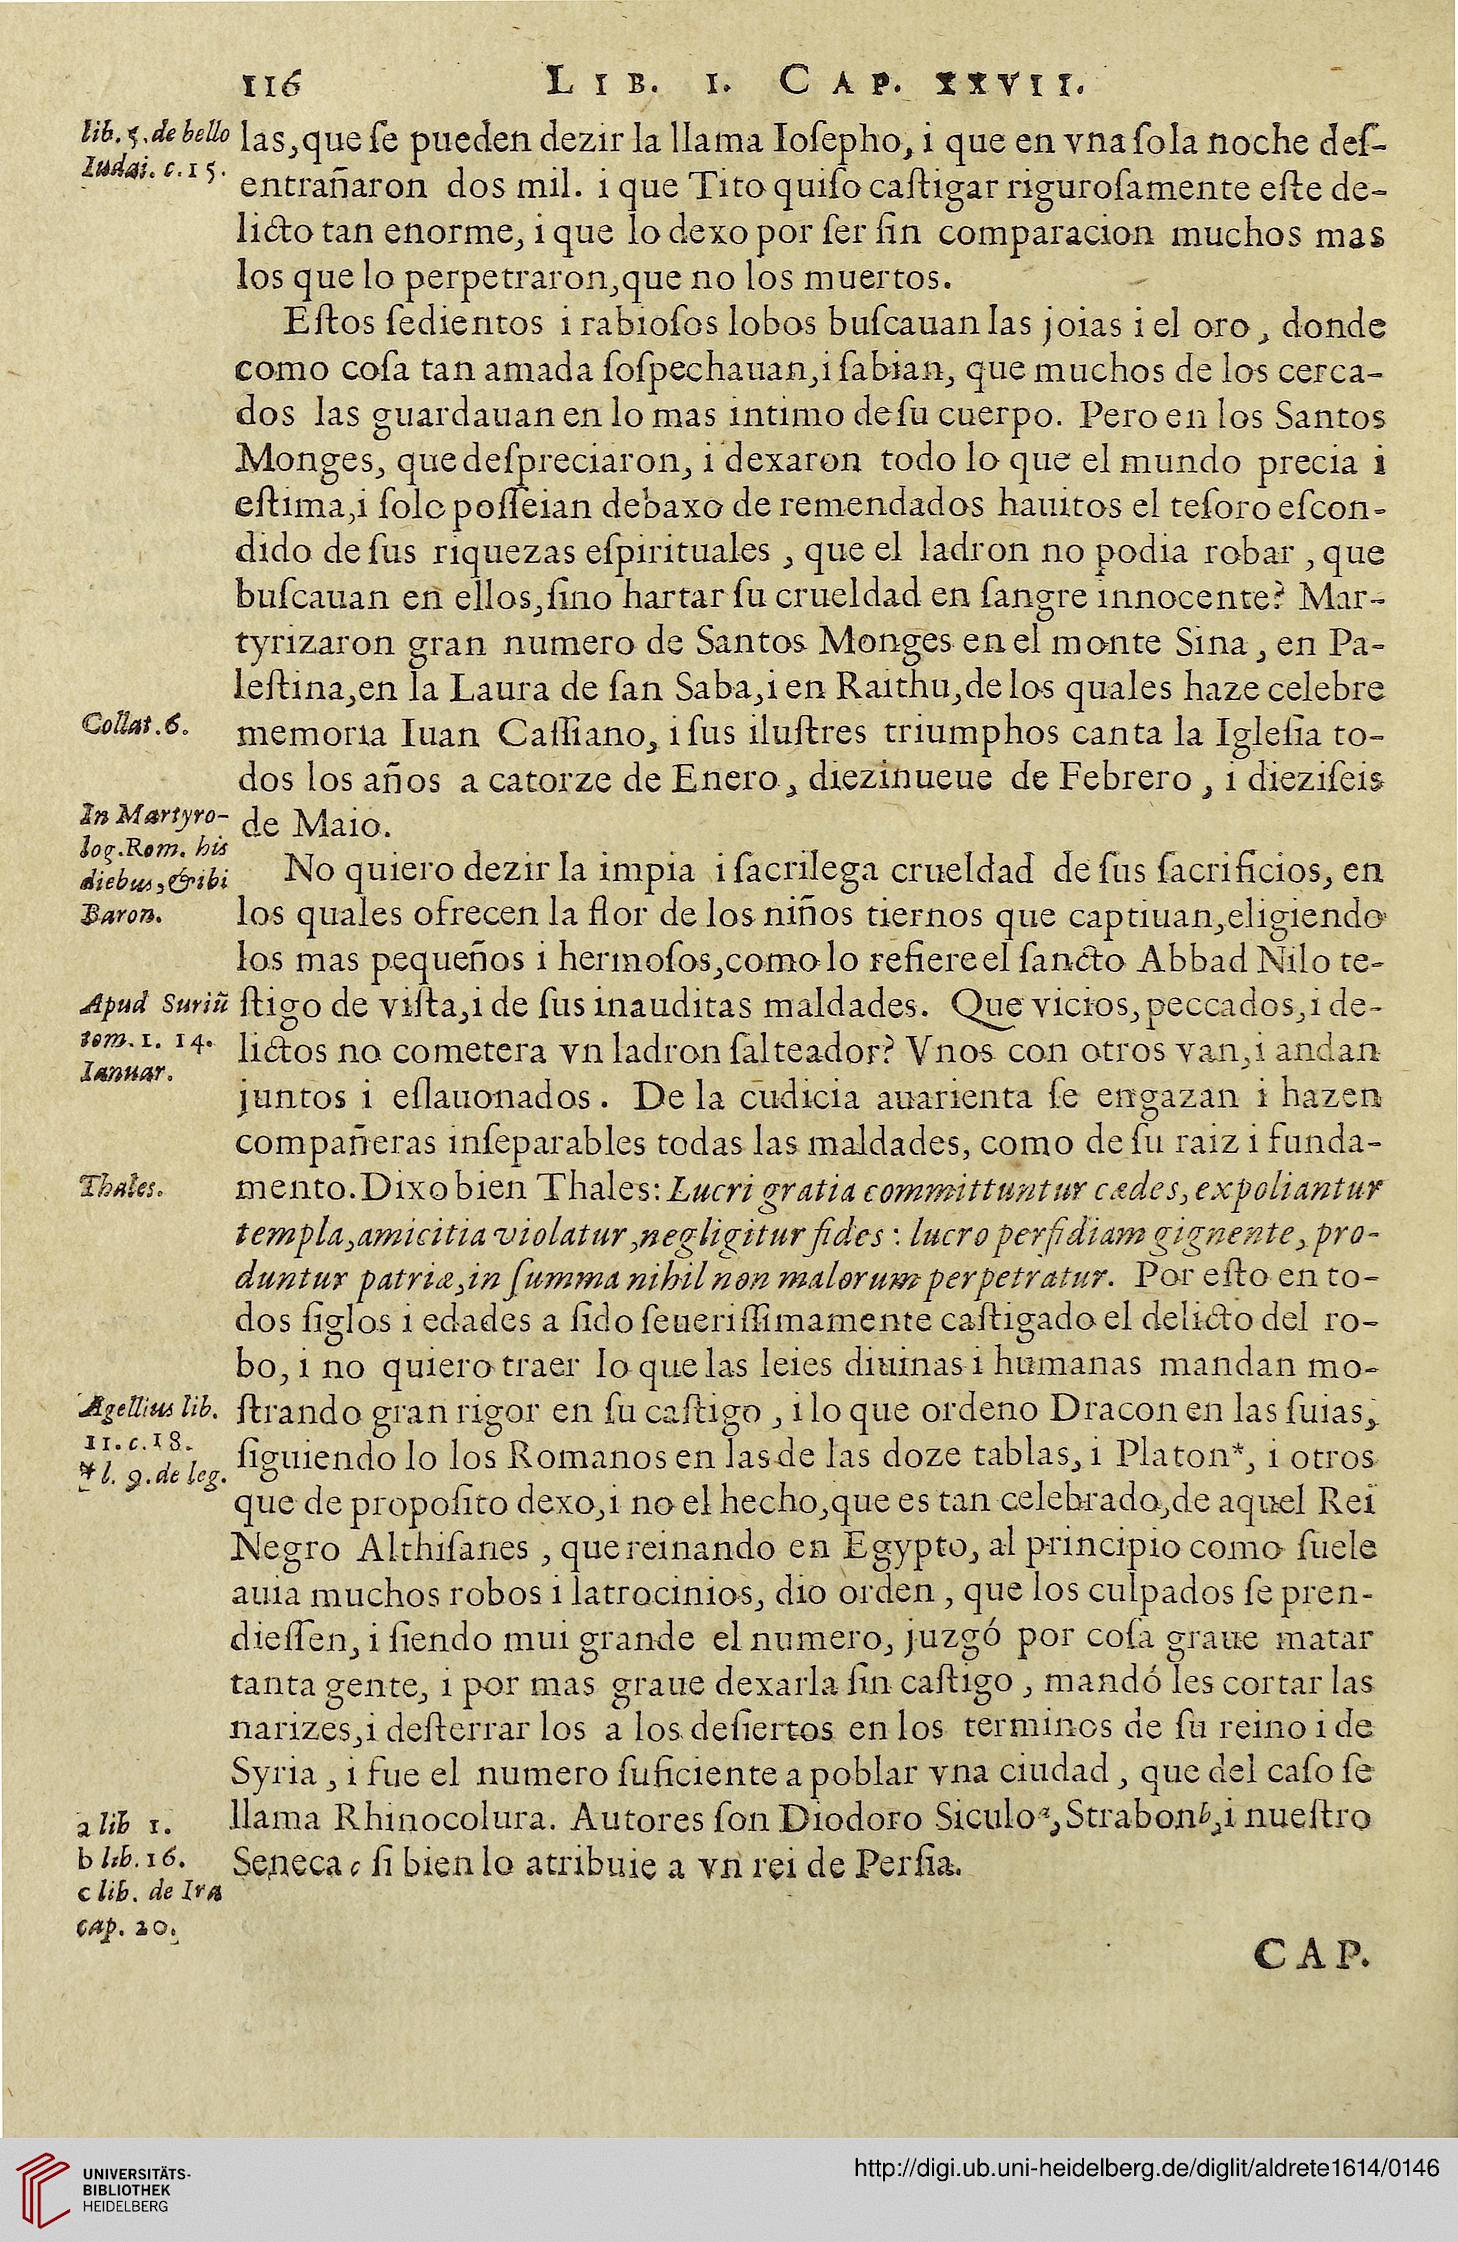 116 LIB. I. CAP. XXVII.
lib. 5. de bello
Iudai. c. 15.
las, que ſe pueden dezir la llama Ioſepho, i que en vna ſola noche deſ-
entrañaron dos mil. i que Tito quiſo caſtigar riguroſamente eſte de-
licto tan enorme, i que lo dexo por ſer ſin comparacion muchos mas
los que lo perpetraron, que no los muertos.
Eſtos ſedientos i rabioſos lobos buſcauan las joias i el oro, donde
como coſa tan amada ſoſpechauan, i ſabian, que muchos de los cerca-
dos las guardauan en lo mas intimo de ſu cuerpo. Pero en los Santos
Monges, que deſpreciaron, i dexaron todo lo que el mundo precia i
eſtima, i ſolo poſſeian debaxo de remendados hauitos el teſoro eſcon-
dido de ſus riquezas eſpirituales, que el ladron no podia robar, que
buſcauan en ellos, ſino hartar ſu crueldad en ſangre innocente? Mar-
tyrizaron gran numero de Santos Monges en el monte Sina, en Pa-
leſtina, en la Laura de ſan Saba, i en Raithu, de los quales haze celebre
Collat. 6.
memoria Iuan Caſſiano, i ſus iluſtres triumphos canta la Igleſia to-
dos los años a catorze de Enero, diezinueue de Febrero, i dieziſeis
In Martyro-
log. Rom. his
diebus, & ibi
Baron.
de Maio.
No quiero dezir la impia i ſacrilega crueldad de ſus ſacrificios, en
los quales ofrecen la flor de los niños tiernos que captiuan, eligiendo
los mas pequeños i hermoſos, como lo refiere el ſancto Abbad Nilo te-
Apud Suriũ
tom. 1. 14.
Ianuar.
ſtigo de viſta, i de ſus inauditas maldades. Que vicios, peccados, i de-
lictos no cometera vn ladron ſalteador? Vnos con otros van, i andan
juntos i eſlauonados. De la cudicia auarienta ſe engazan i hazen
compañeras inſeparables todas las maldades, como de ſu raiz i funda-
Thales.
mento. Dixo bien Thales: Lucri gratia committuntur cædes, expoliantur
templa, amicitia violatur, negligitur fides: lucro perfidiam gignente, pro-
duntur patriæ, in ſumma nihil non malorum perpetratur. Por eſto en to-
dos ſiglos i edades a ſido ſeueriſſimamente caſtigado el delicto del ro-
bo, i no quiero traer lo que las leies diuinas i humanas mandan mo-
Agellius lib.
11. c. 18.
* l. 9. de leg.
ſtrando gran rigor en ſu caſtigo, i lo que ordeno Dracon en las ſuias,
ſiguiendo lo los Romanos en las de las doze tablas, i Platon*, i otros
que de propoſito dexo, i no el hecho, que es tan celebrado, de aquel Rei
Negro Althiſanes, que reinando en Egypto, al principio como ſuele
auia muchos robos i latrocinios, dio orden, que los culpados ſe pren-
dieſſen, i ſiendo mui grande el numero, juzgó por coſa graue matar
tanta gente, i por mas graue dexarla ſin caſtigo, mandó les cortar las
narizes, i deſterrar los a los deſiertos en los terminos de ſu reino i de
Syria, i fue el numero ſuficiente a poblar vna ciudad, que del caſo ſe
a lib 1.
b lib. 16.
c lib. de Ira
cap. 20.
llama Rhinocolura. Autores ſon Diodoro Siculo a, Strabon b, i nueſtro
Seneca c ſi bien lo atribuie a vn rei de Perſia.
CAP.
UNIVERSITÄTS-
BIBLIOTHEK
HEIDELBERG
http://digi.ub.uni-heidelberg.de/diglit/aldrete1614/0146